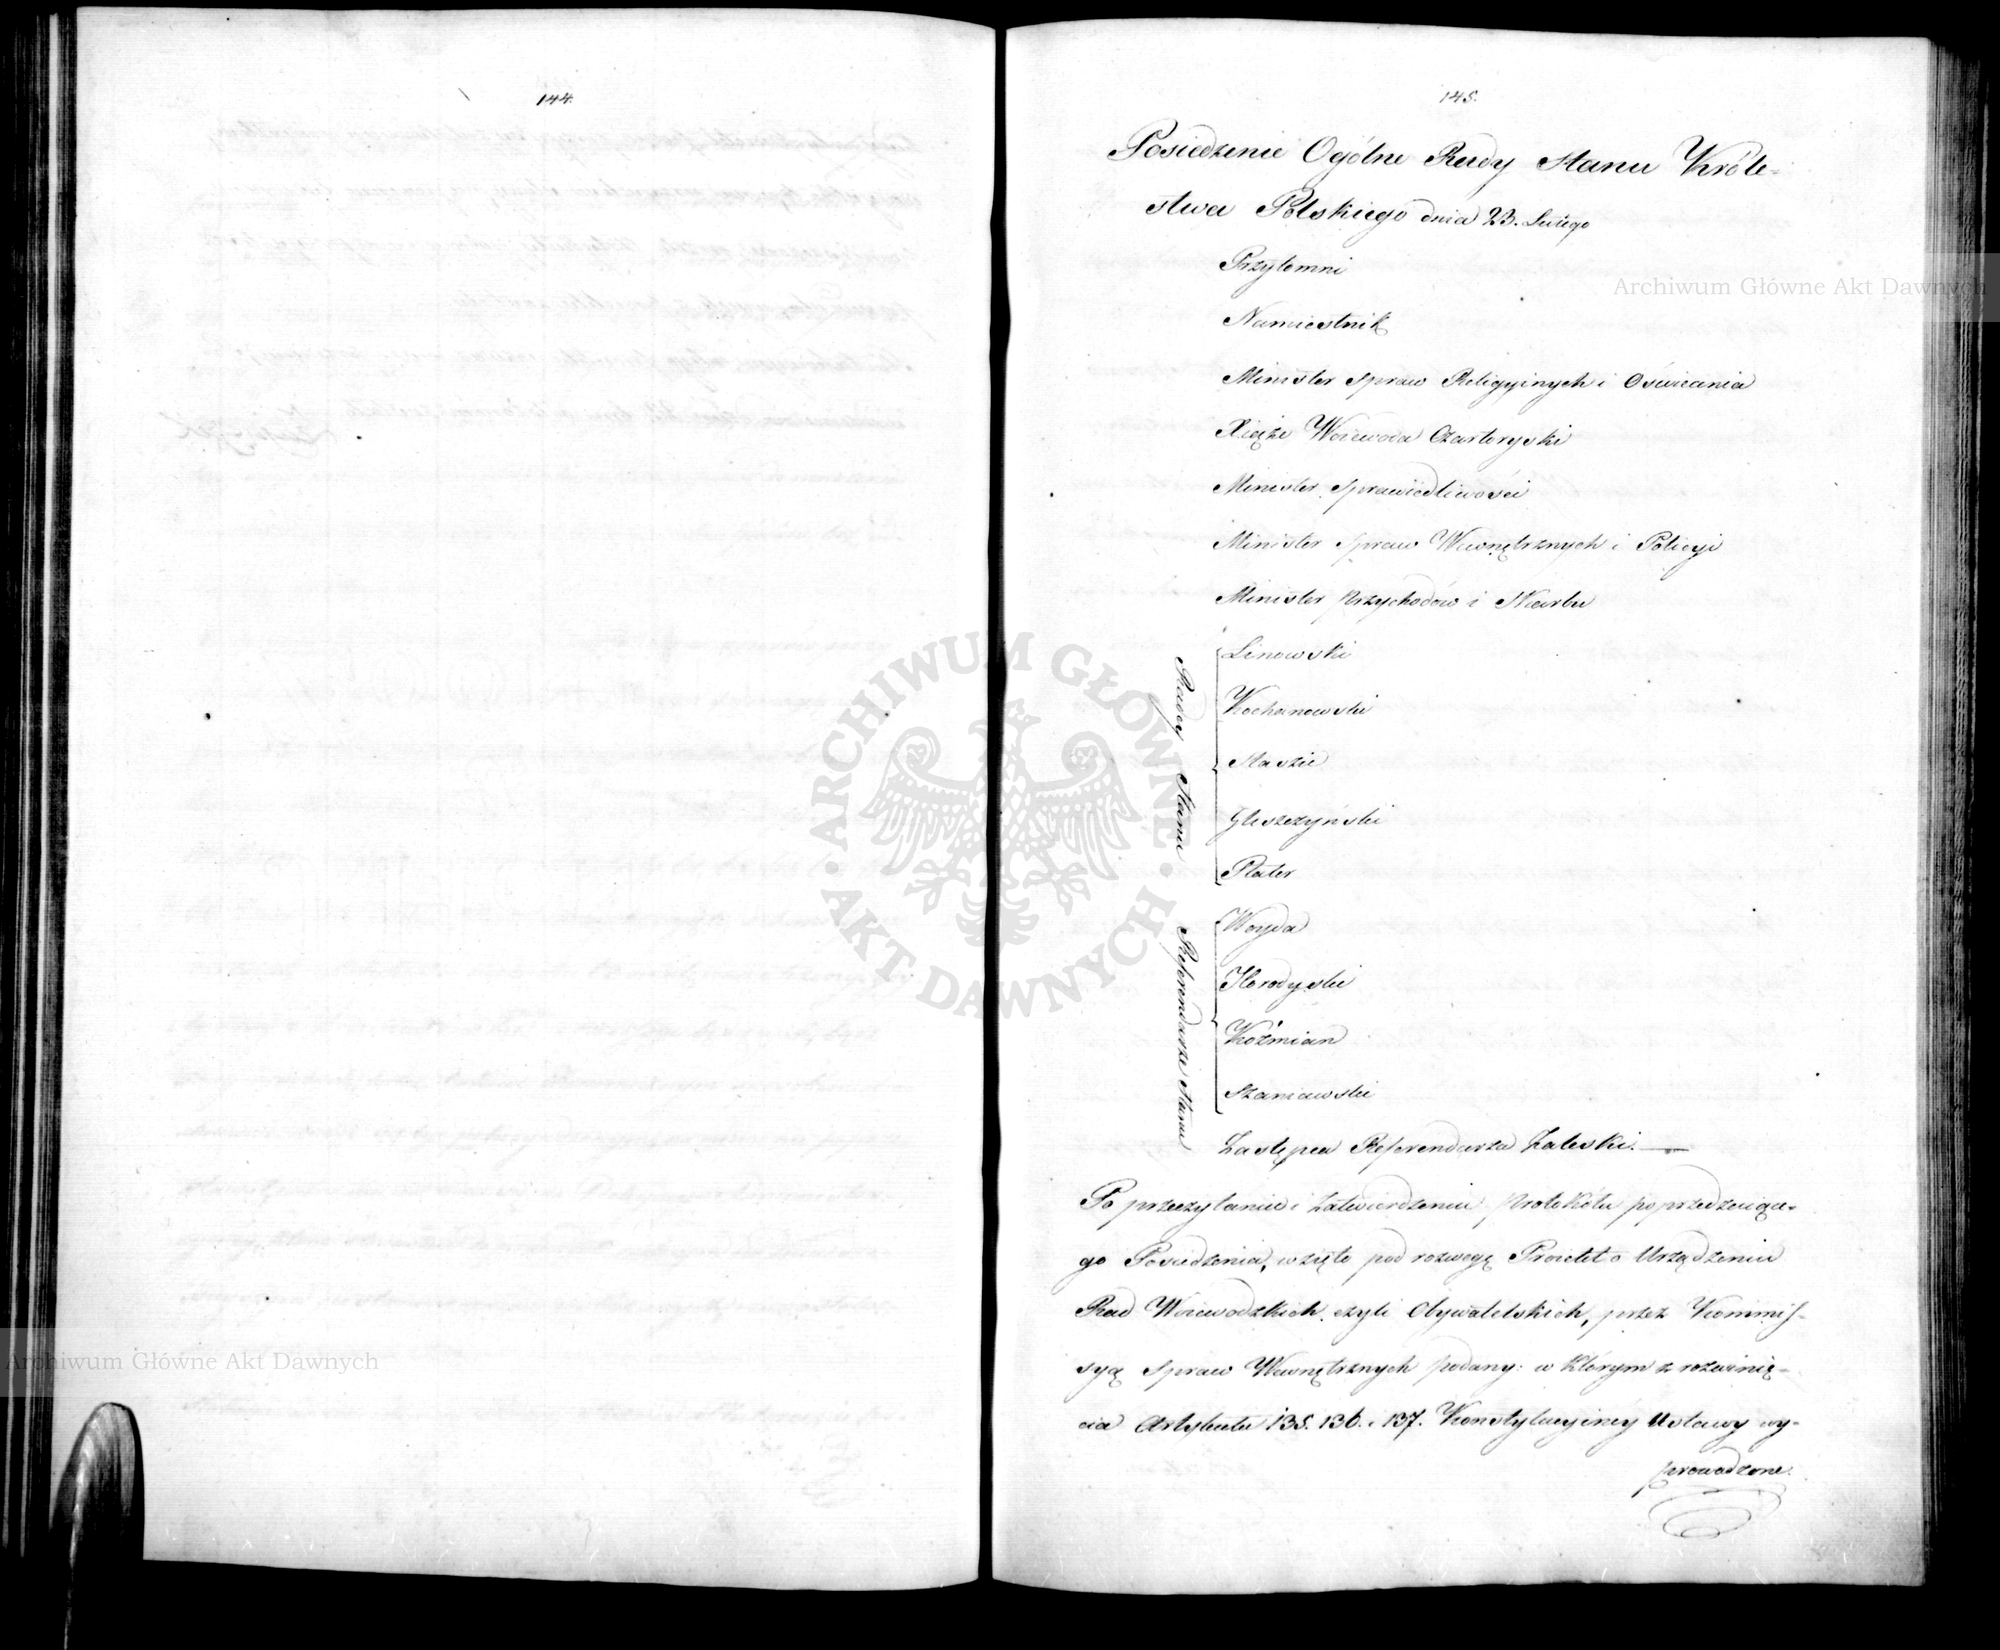 144.
145.
Posiedzenie Ogólne Rady Stanu Króle-
stwa Polskiego dnia 23. Lutego
Przytomni
Namiestnik
Minister Spraw Religyinych i Oświecenia
Xiąże Woiewoda Czartoryski
Minister Sprawiedliwości
Minister Spraw Wewnętrznych i Policyi
Minister Przychodów i Skarbu
Radcy Stanu
Linowski
Kochanowski
Staszic
Gliszczyński
Plater
Referendarze Stanu
Woyda
Horodyski
Koźmian
Szaniawski
Zastępca Referendarza Zaleski.
Po przeczytaniu i zatwierdzeniu Protokółu poprzedzaiące-
go Posiedzenia, wzięto pod rozwagę Proiekt o Urządzeniu
Rad Woiewodzkich czyli Obywatelskich, przez Kommis-
syą Spraw Wewnętrznych podany: w którym z rozwinię-
cia Artykułu 135. 136. i 137. Konstytucyiney Ustawy wy-
prowadzone.
Archiwum Główne Akt Dawnych
Archiwum Główne Akt Dawnych
ARCHIWUM GŁÓWNE
AKT DAWNYCH